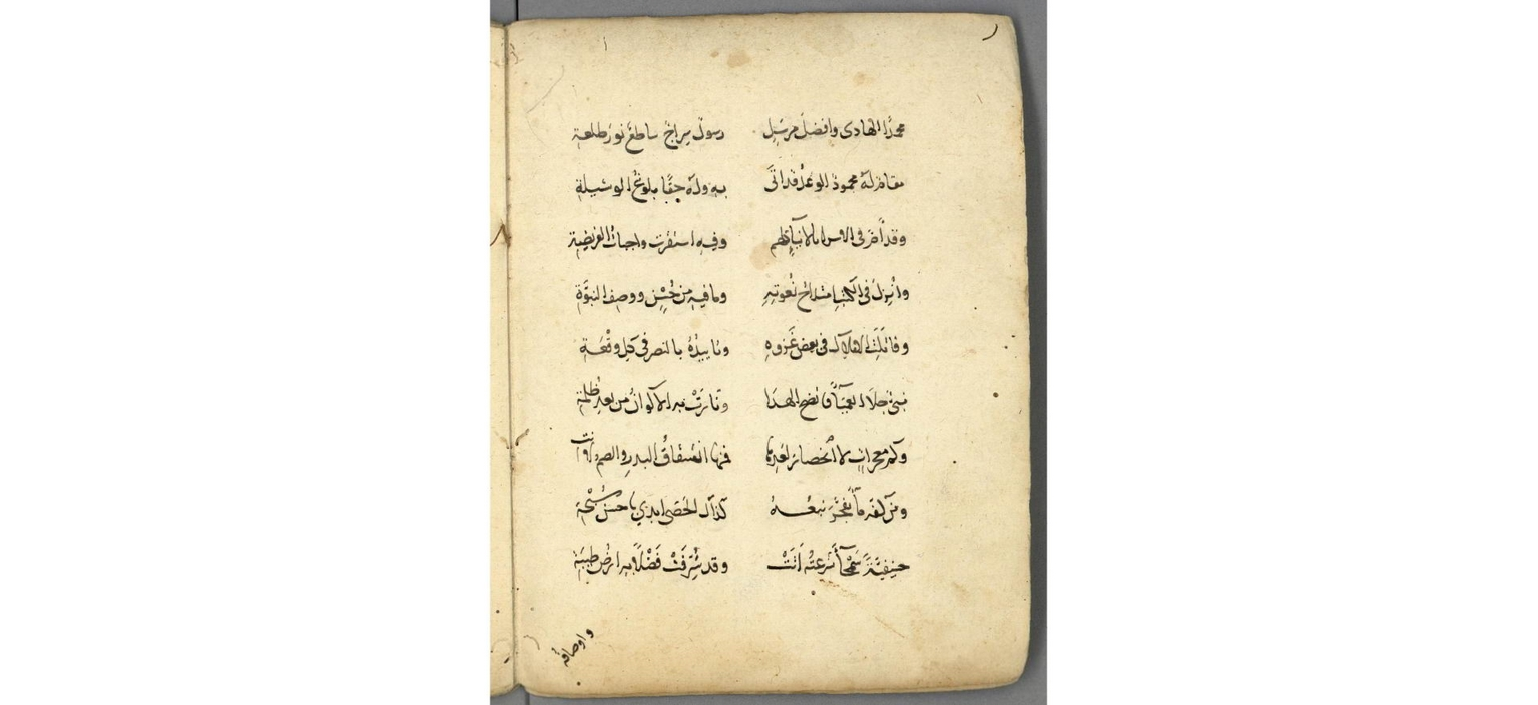 محمدا الهادى وافضل مرسل رسول سراج ساطع نور طلعة
مقام له محمود الوعد قد اتى به وله حقا بلوغ الوسيلة
وقد أم فى الاسرا بالانبيا وفيه استقرت واجبات الفريضة
وانزل فى الكتب نعوته وما فيه من حسن ووصف النبوة
وقاتلت الاملاك فى بعض غزوه وتاييده بالنصر فى كل وقعة
نبى جلا العميا فاتضح الهدا ونارت به الاكوان من بعد ظلمة
وكم معجزات لا انحصار لعدها فمنها انشقاق البدر والصم
ومن كفه مآ تفجر نبعه كذاك الحصى ابدي باحسن سبحة
حنيفية سمحآ شرعته اتت وقد شرفت فضلا به ارض طيبة
واوصافه